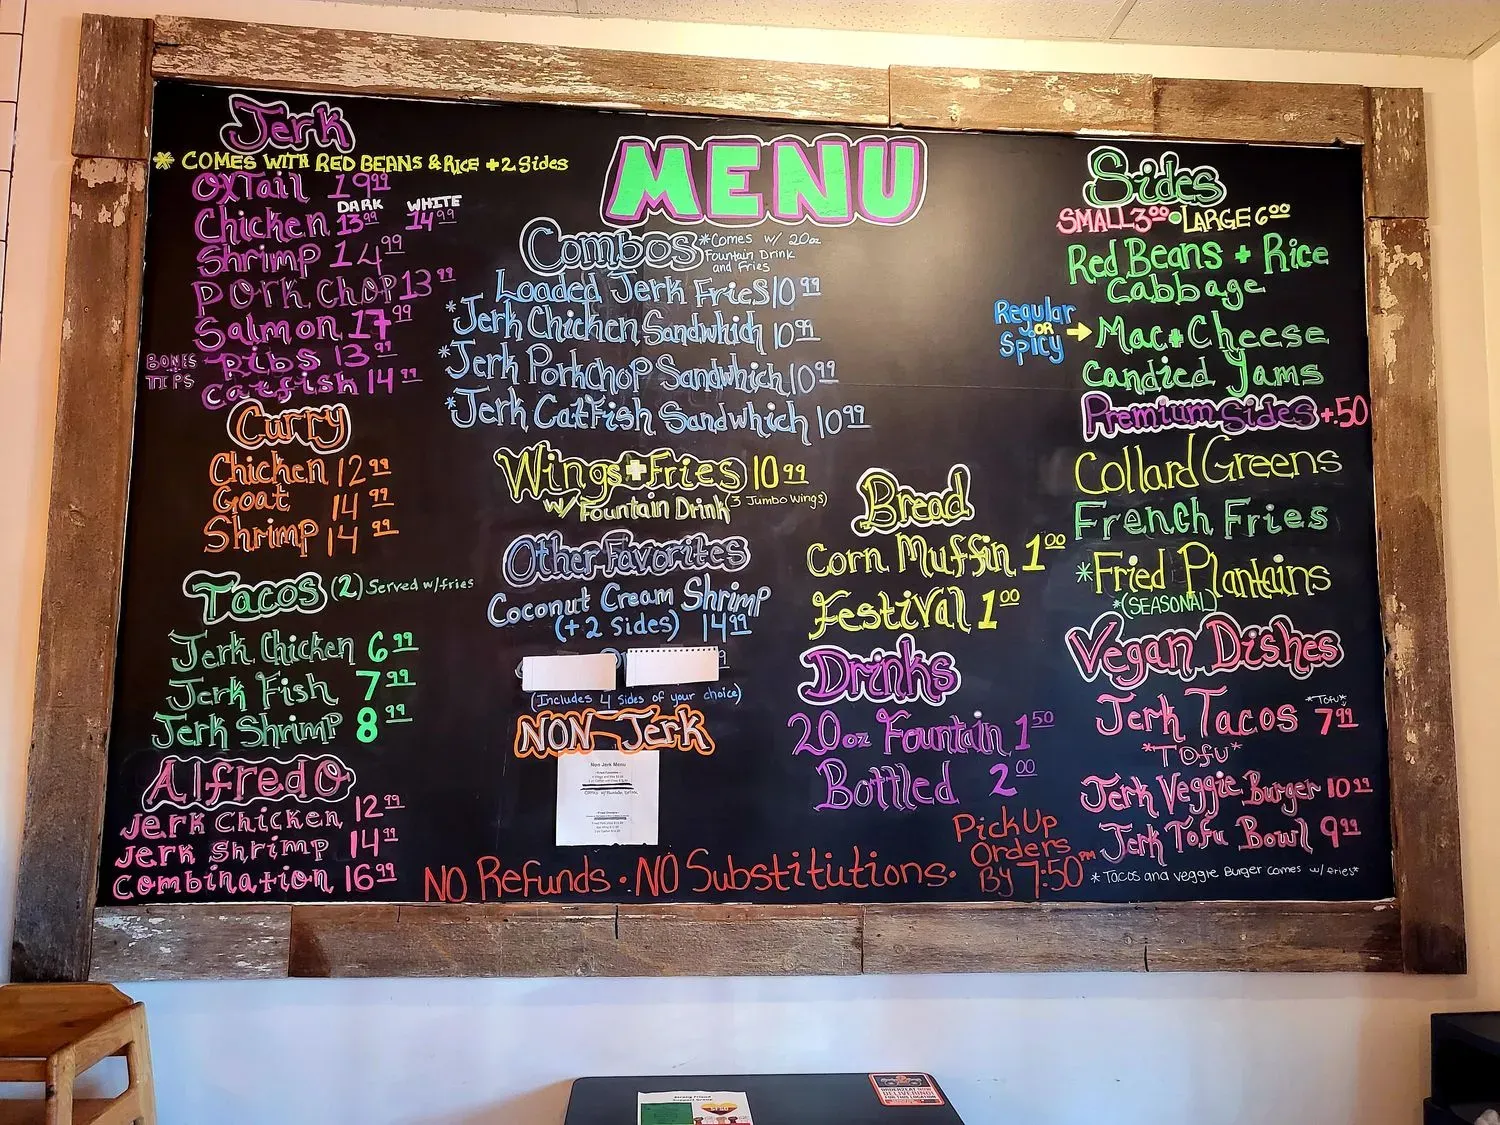 Jerk
* COMES WITH RED BEANS & RICE + 2 Sides
OxTail 19.99
DARK WHITE
Chicken 13.99 14.99
Shrimp 14.99
PORK CHOP 13.99
Salmon 17.99
BONES TIPS
Ribs 13.99
Catfish 14.99
Curry
Chicken 12.99
Goat 14.99
Shrimp 14.99
Tacos (2) Served w/fries
Jerk Chicken 6.99
Jerk Fish 7.99
Jerk Shrimp 8.99
AlfredO
Jerk Chicken 12.99
Jerk Shrimp 14.99
Combination 16.99
MENU
Combos *Comes w/ 20oz
Fountain Drink
and Fries
Loaded Jerk Fries 10.99
*Jerk Chicken Sandwhich 10.99
*Jerk Porkchop Sandwhich 10.99
*Jerk CatFish Sandwhich 10.99
Wings + Fries 10.99
w/ Fountain Drink (3 Jumbo Wings)
Other Favorites
Coconut Cream Shrimp
(+2 Sides) 14.99
(Includes 4 Sides of your choice)
NON-Jerk
Non Jerk Menu
Bread
Corn Muffin 1.00
Festival 1.00
Drinks
20oz Fountain 1.50
Bottled 2.00
Sides
SMALL 3.00 • LARGE 6.00
Red Beans + Rice
Cabbage
Regular
OR
Spicy
Mac + Cheese
Candied Yams
Premium Sides +.50
Collard Greens
French Fries
*Fried Plantains
*(SEASONAL)
Vegan Dishes
Jerk Tacos *Tofu* 7.99
*TOfu*
Jerk Veggie Burger 10.99
Jerk Tofu Bowl 9.99
* Tacos and Veggie Burger Comes w/ fries*
NO Refunds • NO Substitutions •
Pick Up
Orders
By 7:50 PM
DELIVERING!